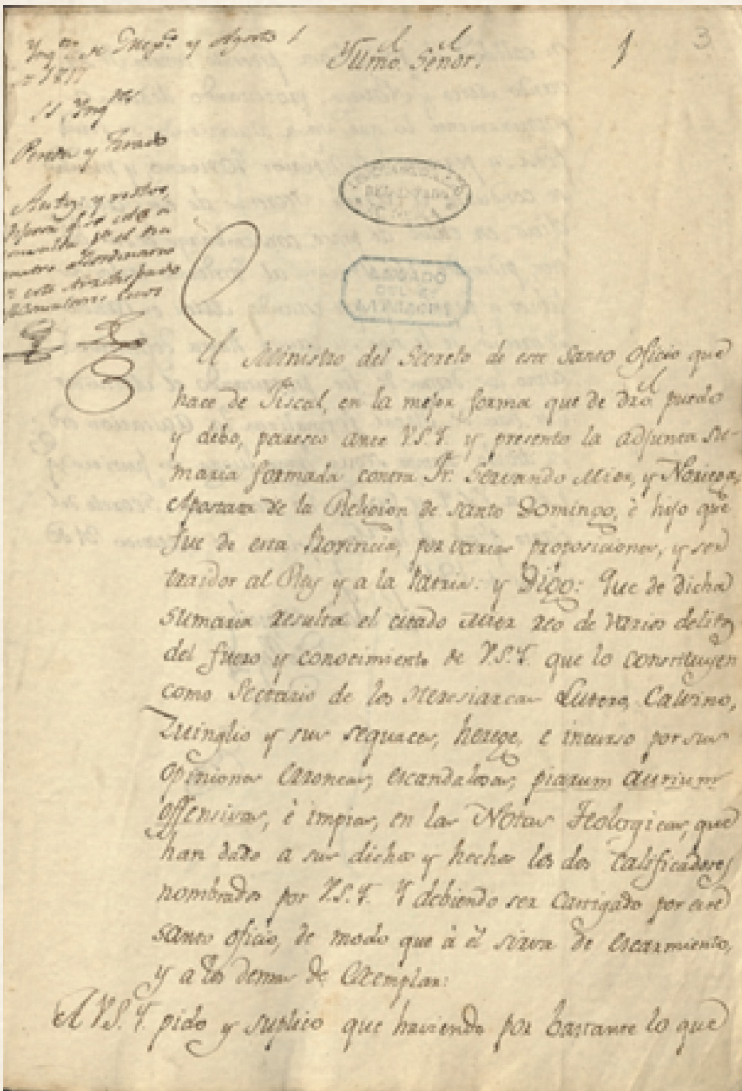 Ynqⁿ de Mexᶜᵒ y Agosto 1
de 1817
SS. Ynqʳᵉˢ
Pereda y Tirado
Autos: y
Yllmo. Señor:
1
3
El Ministro del Secreto de este Santo Oficio que
hace de Fiscal, en la mejor forma que de dro. puedo
y debo, paresco ante V.S.Y. y presento la adjunta su-
maria formada contra Fr. Servando Mier, y Noriega,
Apostata de la Religion de Santo Domingo, è hijo que
fue de esta Provincia, por varias proposiciones, y ser
traidor al Rey y a la Patria: y Digo: Que de dicha
sumaria resulta el citado Mier reo de varios delitos
del fuero y conocimiento de V.S.Y. que lo constituyen
como Sectario de los Heresiarcas Lutero, Calvino,
Zuinglio y sus sequaces, herege, e incurso por sus
opiniones erroneas, escandalosas, piarum aurium
offensivas, è impias, en las Notas Teologicas, que
han dado a sus dichos y hechos los dos Calificadores
nombrados por V.S.Y. Y debiendo ser castigado por este
santo oficio, de modo que à èl sirva de escarmiento,
y a los demas de Exemplar:
A V.S.Y. pido y suplico que haviendo por bastante lo que